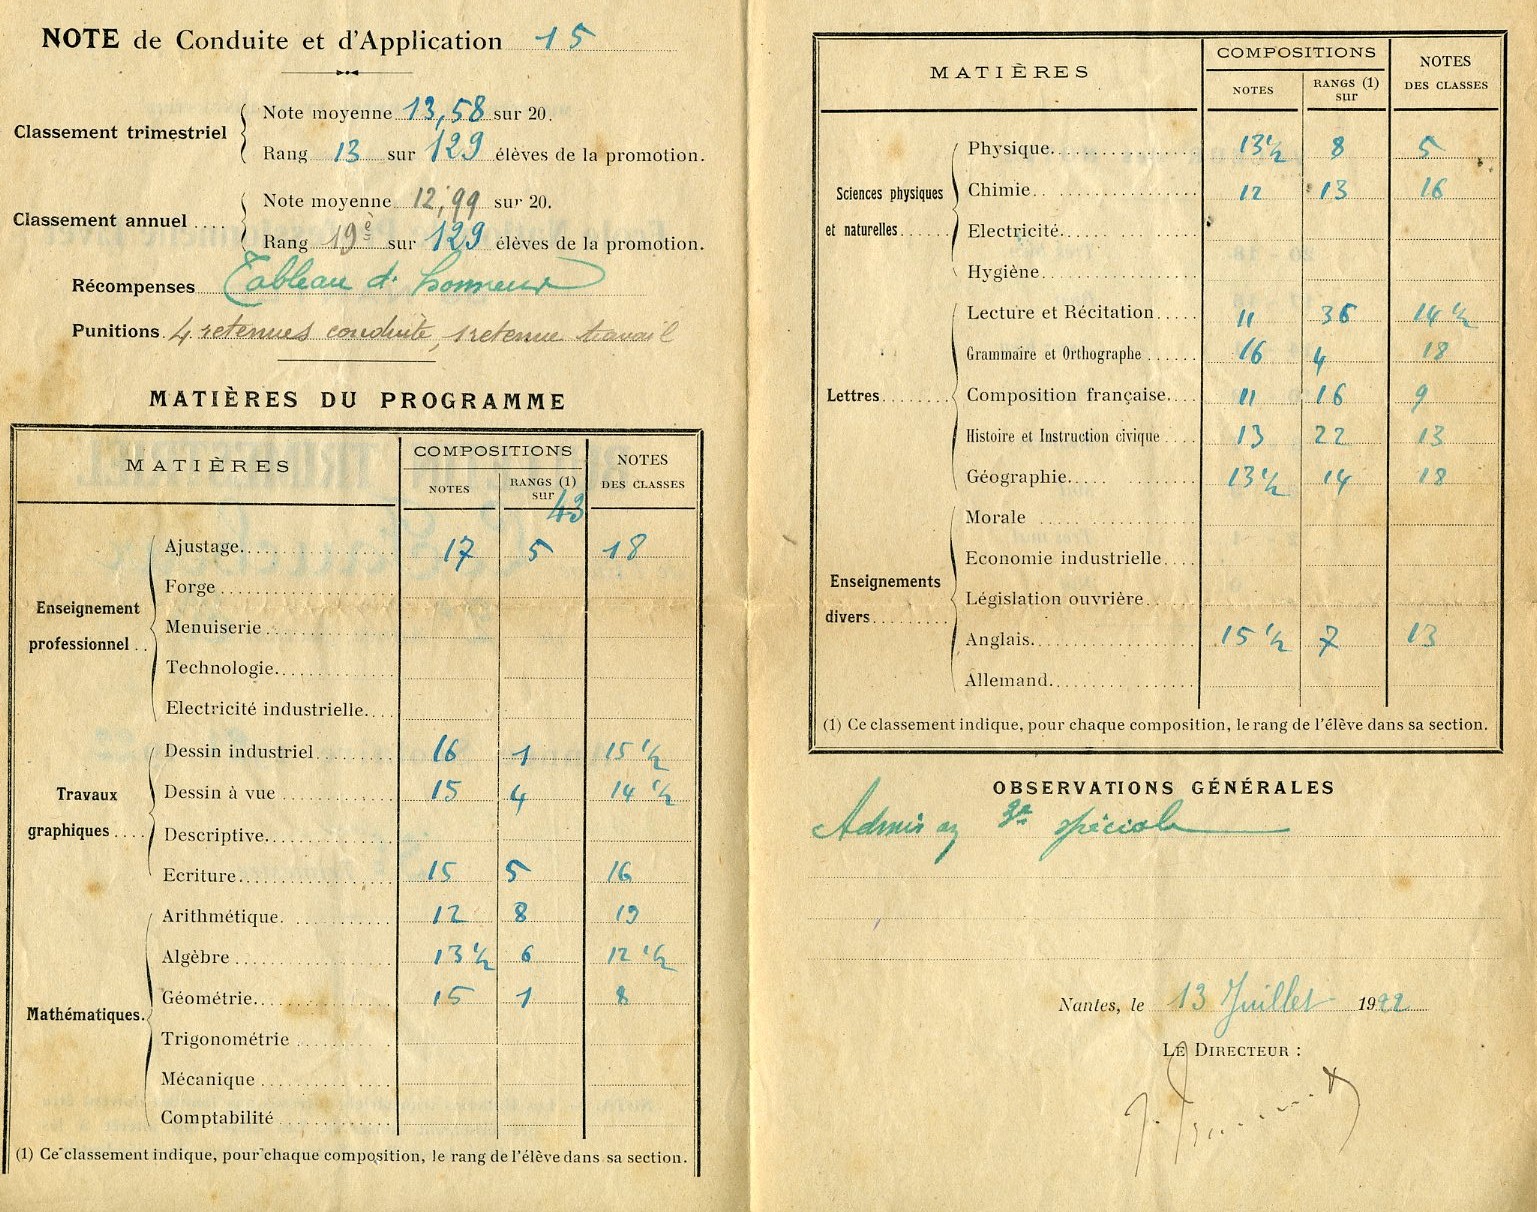 NOTE de Conduite et d'Application 15
Classement trimestriel
Note moyenne 13,58 sur 20.
Rang 13 sur 129 élèves de la promotion.
Classement annuel ....
Note moyenne 12,99 sur 20.
Rang 19è sur 129 élèves de la promotion.
Récompenses Tableau d'honneur
Punitions. 4 retenues conduite, 1 retenue travail
MATIÈRES DU PROGRAMME
MATIÈRES COMPOSITIONS NOTES DES CLASSES
NOTES RANGS (1) sur 43
Enseignement professionnel ..
Ajustage 17 5 18
Forge
Menuiserie
Technologie
Electricité industrielle
Travaux graphiques ....
Dessin industriel 16 1 15 1/2
Dessin à vue 15 4 14 1/2
Descriptive
Ecriture 15 5 16
Mathématiques.
Arithmétique 12 8 19
Algèbre 13 1/2 6 12 1/2
Géométrie 15 1 8
Trigonométrie
Mécanique
Comptabilité
(1) Ce classement indique, pour chaque composition, le rang de l'élève dans sa section.
MATIÈRES COMPOSITIONS NOTES DES CLASSES
NOTES RANGS (1) sur
Sciences physiques et naturelles......
Physique 13 1/2 8 5
Chimie 12 13 16
Electricité
Hygiène
Lettres........
Lecture et Récitation 11 36 14 1/2
Grammaire et Orthographe 16 4 18
Composition française 11 16 9
Histoire et Instruction civique 13 22 13
Géographie 13 1/2 14 18
Enseignements divers.........
Morale
Economie industrielle
Législation ouvrière
Anglais 15 1/2 7 13
Allemand
(1) Ce classement indique, pour chaque composition, le rang de l'élève dans sa section.
OBSERVATIONS GÉNÉRALES
Admis en 3e spéciale
Nantes, le 13 Juillet 1922
LE DIRECTEUR :